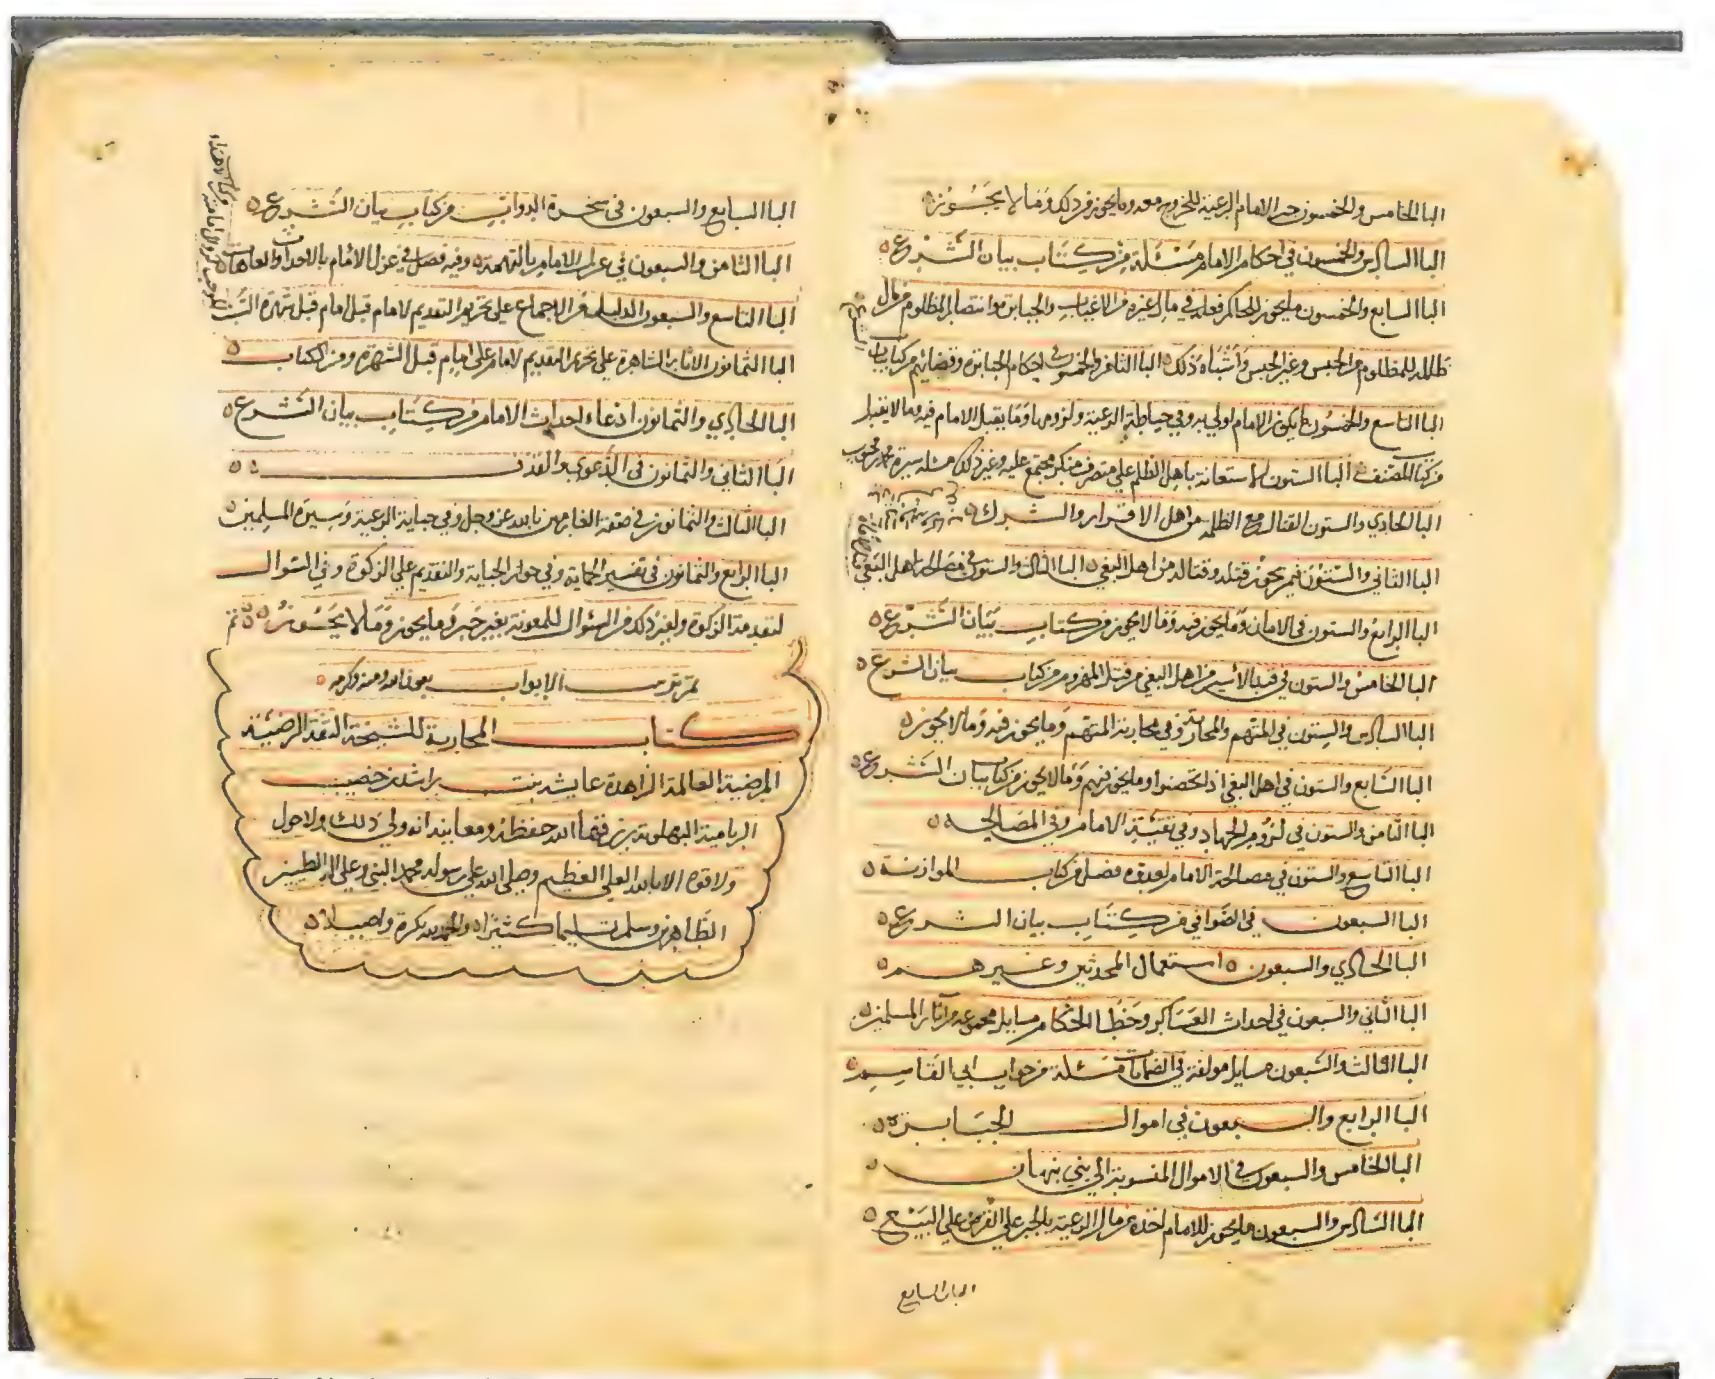 الباب الخامس والخمسون جبر الامام الرعية للخروج معه وما يجوز من ذلك وما لا يجوز
الباب السادس والخمسون في احكام الامام مسئلة من كتاب بيان الشرع
الباب السابع والخمسون ما يجوز للحاكم فعله في مال غيره من الاغياب والجبابرة وانتصار المظلوم من مال
ظالمه للمظلوم من الحبس وغير الحبس وأشباه ذلك الباب الثامن والخمسون في احكام الجبابرة وقضاياهم من كتاب بيان
الباب التاسع والخمسون ما يكون الامام اولى به وفي حياطة الرعية ولزومها وما يقبل الامام فيه وما لا يقبل
من كتاب المصنف الباب الستون الاستعانة باهل الظلم على متصرف منكر مجتمع عليه وغير ذلك مسئلة سيرة محمد بن محبوب
الباب الحادي والستون القتال مع الظلمه من اهل الاقرار والشرك
الباب الثاني والستون فيمن يجوز قتله وقتاله من اهل البغي الباب الثالث والستون في اهل البغي
الباب الرابع والستون في الامان وما يجوز فيه وما لا يجوز من كتاب بيان الشرع
الباب الخامس والستون في قتل الأسير من اهل البغي من قتل المنهزم من كتاب بيان الشرع
الباب السادس والستون في المتهم والمحاربة وفي محاربة المتهم وما يجوز فيه وما لا يجوز
الباب السابع والستون في اهل البغي اذا تحصنوا وما يجوز فيهم وما لا يجوز من كتاب بيان الشرع
الباب الثامن والستون في لزوم الجهاد وفي تقية الامام وفي المصالحه
الباب التاسع والستون في مصالحة الامام لعدوه فصل من كتاب الموازنة
الباب السبعون في الصوافي من كتاب بيان الشرع
الباب الحادي والسبعون استعمال المحدثين وغيرهم
الباب الثاني والسبعون في احداث العساكر وخطا الحكام مسايل مجموعه من آثار المسلمين
الباب الثالث والسبعون مسايل مولفة في الضمانات مسئلة من جواب ابي القاسم
الباب الرابع والسبعون في اموال الجبابرة
الباب الخامس والسبعون في الاموال المنسوبة الى بني نبهان
الباب السادس والسبعون ما يجوز للامام اخذه من مال الرعية بالجبر على القرض على البيع
الباب السابع
الباب السابع والسبعون في سخرة الدواب من كتاب بيان الشرع
الباب الثامن والسبعون في عزل الامام بالتهمة وفيه فصل في عزل الامام بالاحداث والعاهات
الباب التاسع والسبعون الدليل من الاجماع على تحريم التقديم لامام قبل امام قبل شهرة
الباب الثمانون الاثار الشاهرة على تحريم التقديم لامام على امام قبل الشهرة ومن الكتاب
الباب الحادي والثمانون ادعاء احداث الامام من كتاب بيان الشرع
الباب الثاني والثمانون في الدعوى والقذف
الباب الثالث والثمانون في صفة الغارمين بالله عز وجل وفي جباية الرعية وسيرة المسلمين
الباب الرابع والثمانون في تفسير الحماية وفي جواز الجباية والتقديم على الزكوة وفي السوال
لتقدمة الزكوة ولغير ذلك من السئوال للمعونة بغير جبر وما يجوز وما لا يجوز تم
تم ترتيب الابواب بعون الله ومنه وكرمه
كتاب المحاربة للشيخة الثقة الرضية
المرضية العالمة الزاهدة عايشه بنت راشد بن خصيب
الريامية البهلوية رزقها الله حفظه ومعانيه انه ولي ذلك ولا حول
ولا قوة الا بالله العلي العظيم وصلى الله على رسوله محمد النبي وعلى اله الطيبين
الطاهرين وسلم تسليما كثيرا والحمد لله بكرة واصيلا